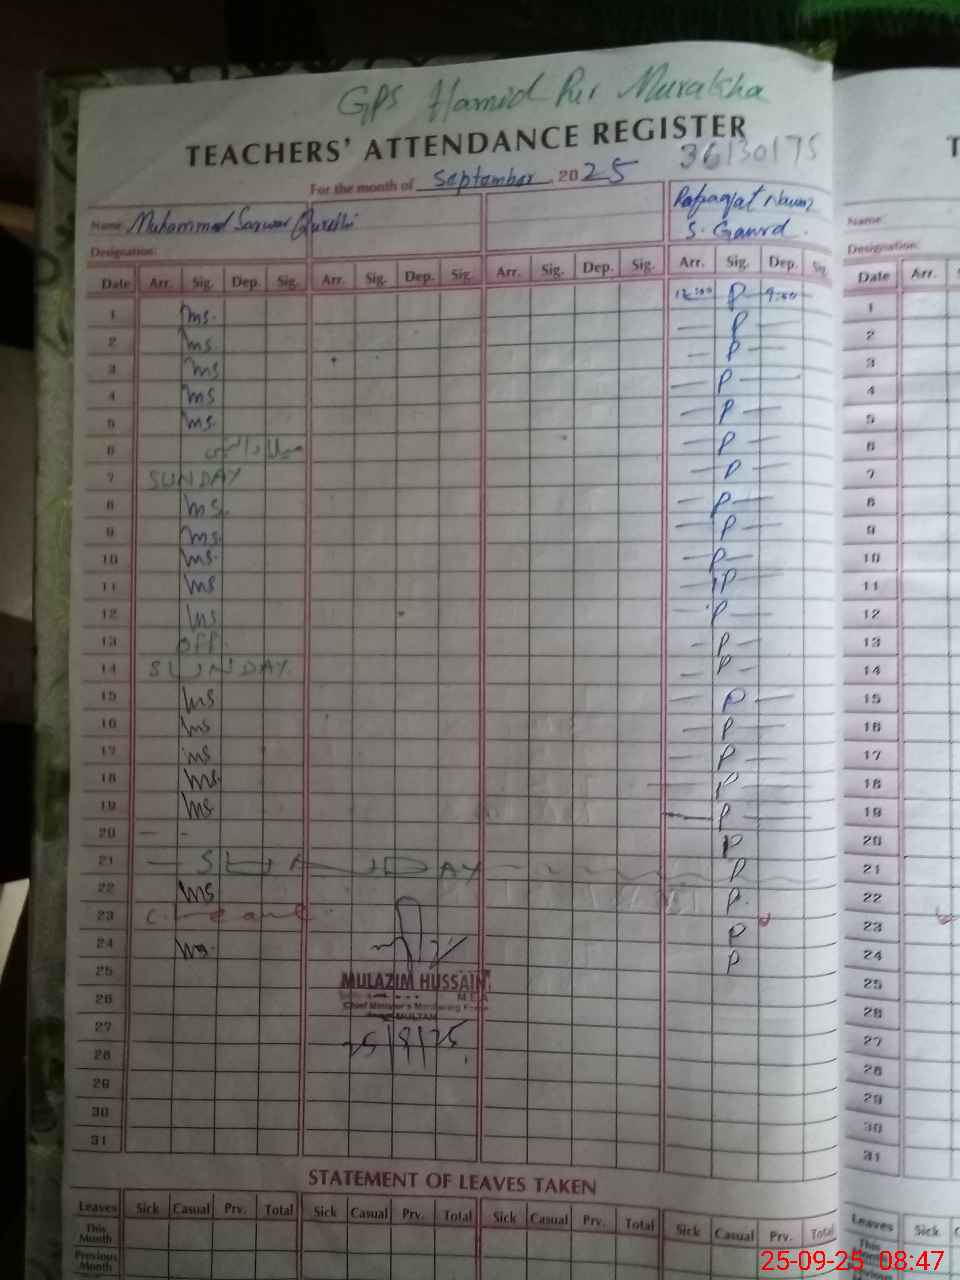 GPS Hamid Pur Muralsha
TEACHERS' ATTENDANCE REGISTER
36130175
For the month of September, 2025
Name: Muhammad Sarwar Qureshi
Designation:
Nawaz
S. Gaurd
Date Arr. Sig. Dep. Sig. Arr. Sig. Dep. Sig. Arr. Sig. Dep. Sig. Arr. Sig. Dep. Sig.
1 ms. 12:00 P 9:00
2 ms P
3 ms P
4 ms P
5 ms. P
6 P
7 SUNDAY P
8 ms. P
9 ms. P
10 ms. P
11 ms P
12 ms P
13 off. P
14 SUNDAY P
15 ms P
16 ms P
17 ms P
18 ms. P
19 ms. P
20 - - P
21 SUNDAY P
22 ms P.
23 P
24 ms. P
25
MULAZIM HUSSAIN
M.E.A
Chief Minister's Monitoring Force
MULTAN
26
27
28
29
30
31
STATEMENT OF LEAVES TAKEN
Leaves Sick Casual Prv. Total Sick Casual Prv. Total Sick Casual Prv. Total Sick Casual Prv. Total
This Month
Previous Month
T
Name:
Designation:
Date Arr. S
1
2
3
4
5
6
7
8
9
10
11
12
13
14
15
16
17
18
19
20
21
22
23
24
25
26
27
28
29
30
31
Leaves Sick C
This
25-09-25 08:47